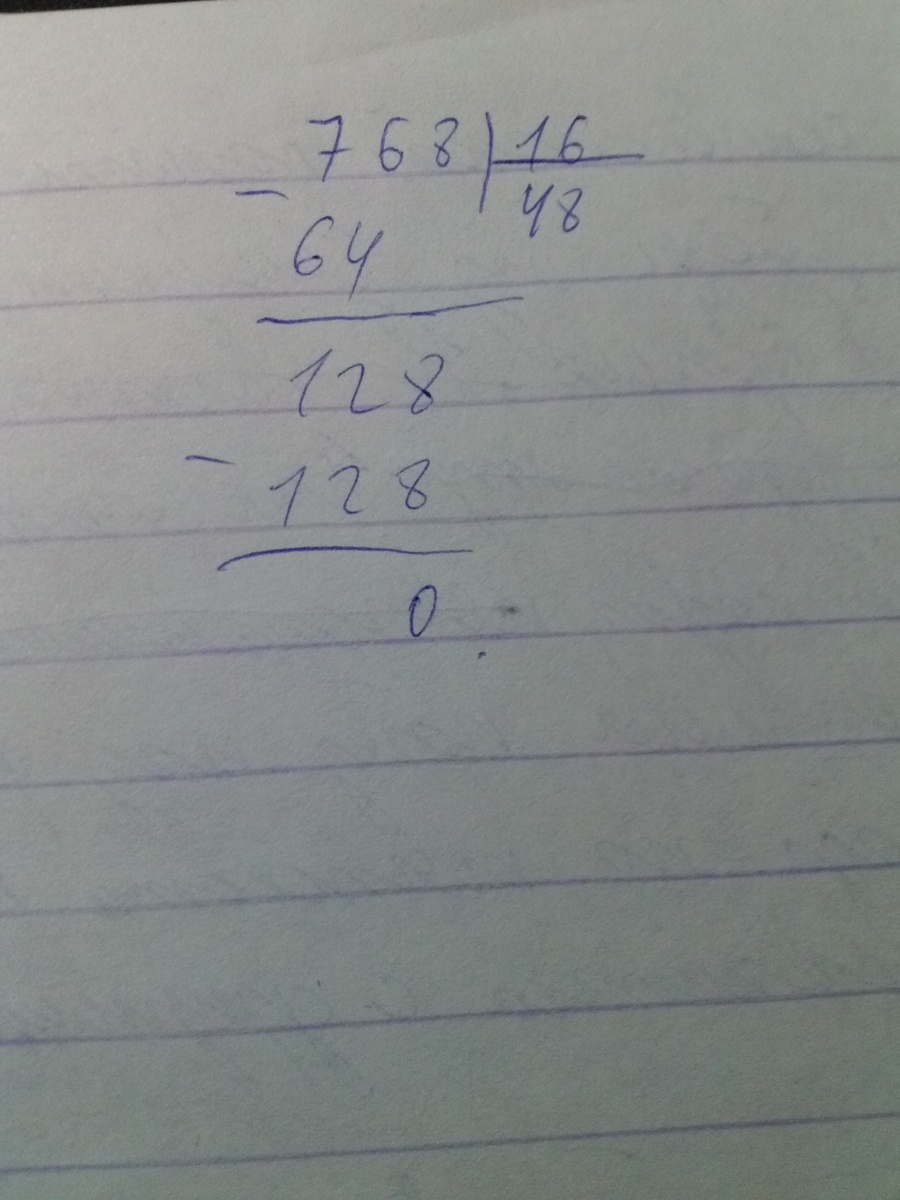 768|16
- 48
64
128
- 128
0